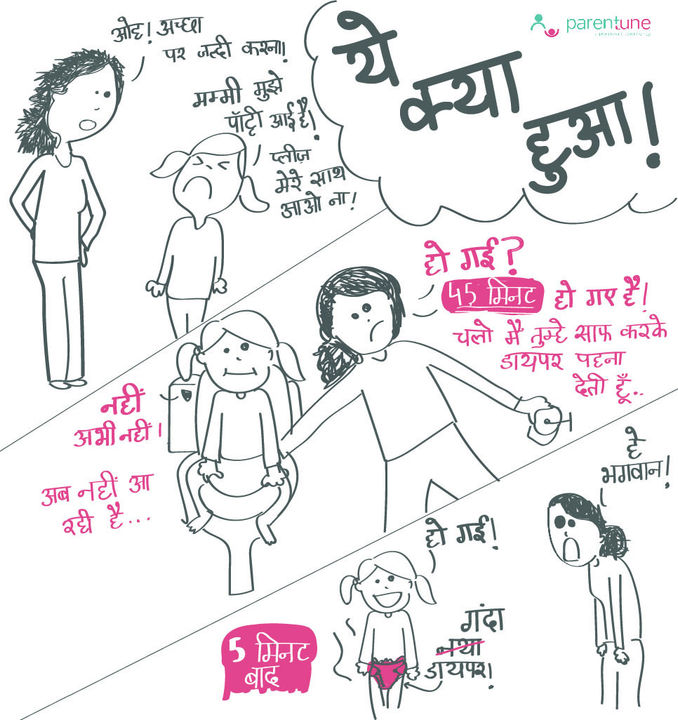 parentune
ये
क्या
हुआ!
ओह! अच्छा
पर जल्दी करना।
मम्मी मुझे
पॉट्टी आई है।
प्लीज़
मेरे साथ
आओ ना!
हो गई?
45 मिनट हो गए है।
चलो मै तुम्हे साफ करके
डायपर पहना
देती हूँ..
नहीं
अभी नहीं।
अब नहीं आ
रही है...
हे
भगवान!
हो गई।
5 मिनट
बाद
गंदा
नया
डायपर।